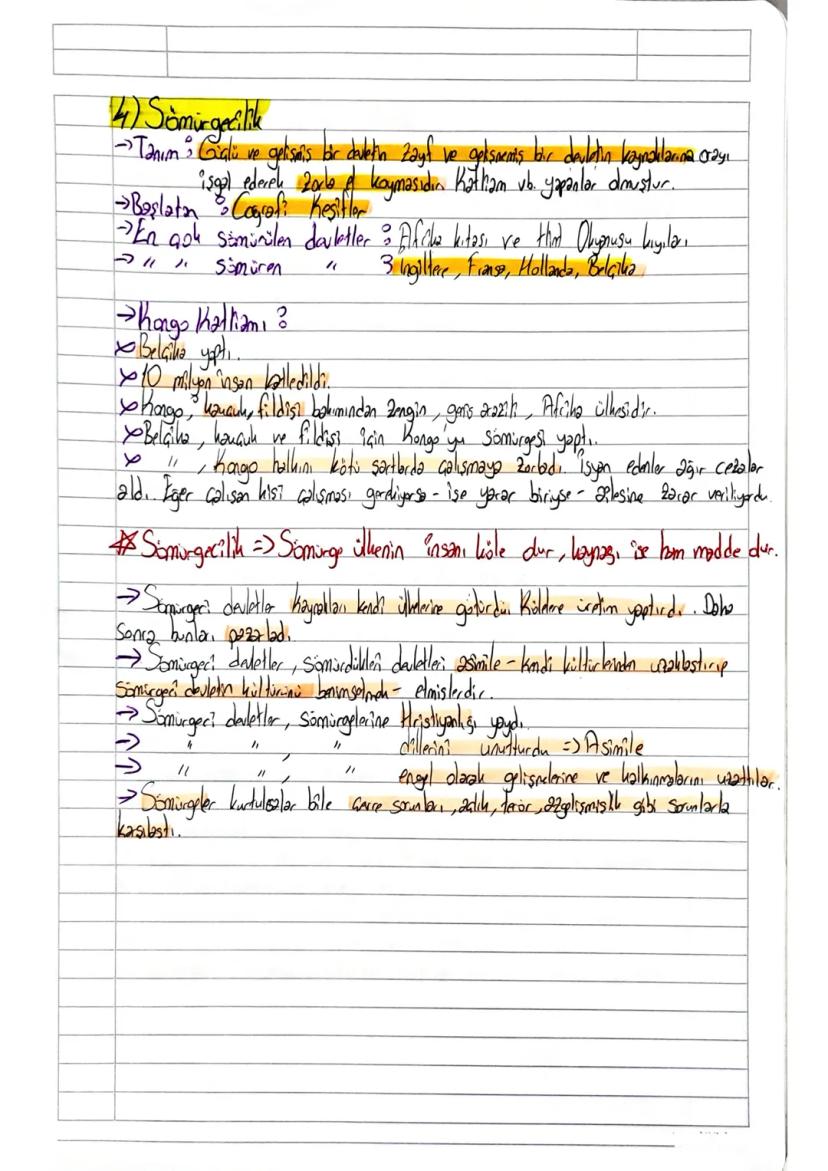 4) Sömürgecilik
→Tanım : Güçlü ve gelişmiş bir devletin zayıf ve gelişmemiş bir devletin kaynaklarına orayı
işgal ederek zorla el koymasıdır. Katliam vb. yapanlar olmuştur.
→Başlatan : Coğrafi Keşifler
→En çok sömürülen devletler : Afrika kıtası ve Hint Okyanusu kıyıları
→ " " sömüren " : İngiltere, Fransa, Hollanda, Belçika
→Kongo Katliamı :
x Belçika yaptı.
x 10 milyon insan katledildi.
x Kongo, kauçuk, fildişi bakımından zengin, geniş arazili, Afrika ülkesidir.
x Belçika, kauçuk ve fildişi için Kongo'yu sömürgesi yaptı.
x " , Kongo halkını kötü şartlarda çalışmaya zorladı. İsyan edenler ağır cezalar
aldı. Eğer çalışan kişi çalışması gerekiyorsa - işe yarar biriyse - ailesine zarar veriliyordu.
* Sömürgecilik => Sömürge ülkenin insanı köle dur, kaynağı ise ham madde dur.
→ Sömürgeci devletler kaynakları kendi ülkelerine götürdü. Kölelere üretim yaptırdı. Daha
sonra bunları pazarladı.
→ Sömürgeci devletler, sömürdükleri devletleri asimile - kendi kültürlerinden uzaklaştırıp
sömürgeci devletin kültürünü benimsetmek - etmişlerdir.
→ Sömürgeci devletler, sömürgelerine Hristiyanlığı yaydı.
→ " " , " dillerini unutturdu => Asimile
→ " " , " engel olarak gelişmelerine ve kalkınmalarını uzattılar.
→ Sömürgeler kurtulsalar bile çevre sorunları, açlık, terör, azgelişmişlik gibi sorunlarla
karşılaştı.